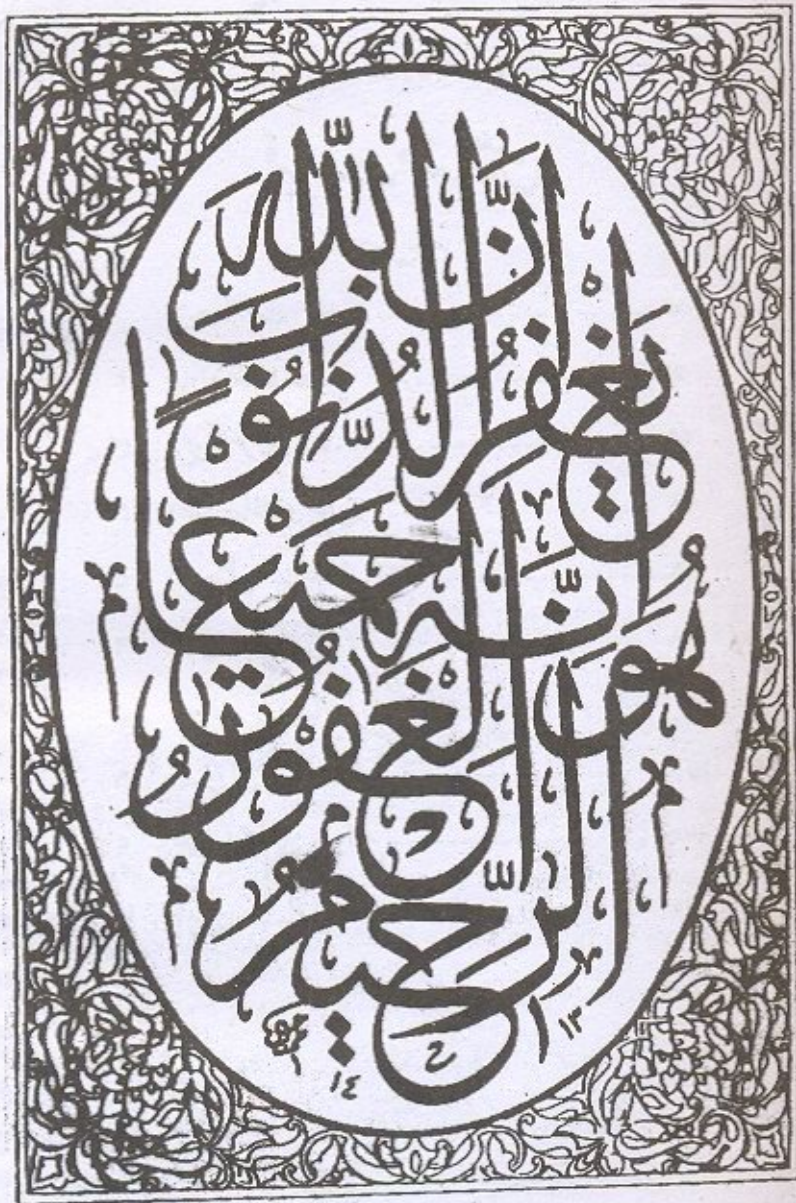 إِنَّ اللّٰهَ
يَغْفِرُ الذُّنُوبَ
جَمِيعًا إِنَّهُ
هُوَ الْغَفُورُ
الرَّحِيمُ
١٤ ١٣